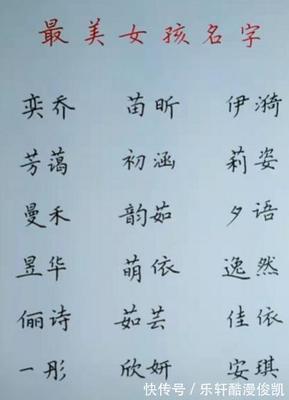 最美女孩名字
奕乔 苗昕 伊漪
芳蔼 初涵 莉姿
曼禾 韵茹 夕语
昱华 萌依 逸然
俪诗 茹芸 佳依
一彤 欣妍 安琪
快传号 / 乐轩酷漫俊凯